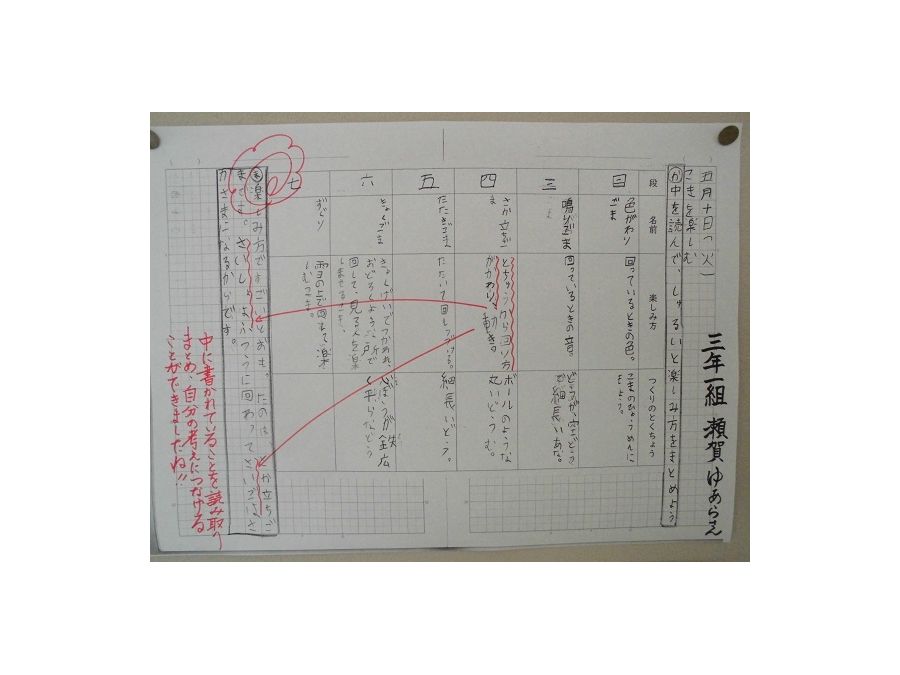 三年一組 瀬賀 ゆあらえ
五月十日(火)
こまを楽しむ
か 中を読んで、しゅるいと楽しみ方をまとめよう
段
名前
楽しみ方
つくりのとくちょう
二
色がわり
ごま
回っているときの色。
こまのひょうめんに
もよう。
三
鳴りごま
回っているときの音。
どうが、空どうで
細長いあな。
四
さか立ちご
ま
とちゅうから回り方
がかわり、動き。
ボールのような
丸いどう
五
たたきごま
たたいて回しつづける。
細長いどう。
六
きょくごま
きょくげいでつかわれ、
おどろくような所で
回して、見る人を楽
しませるこま。
心ぼうが鉄
広く平らなどう
七
ずぐり
雪の上で回して楽
しむこま。
楽しみ方ですごいと
さか立ちご
まです。さいしょはふつうに回わって
かさまになるからです。
中に書かれていることを読み取り
まとめ、自分の考えにつなげる
ことができましたね!!